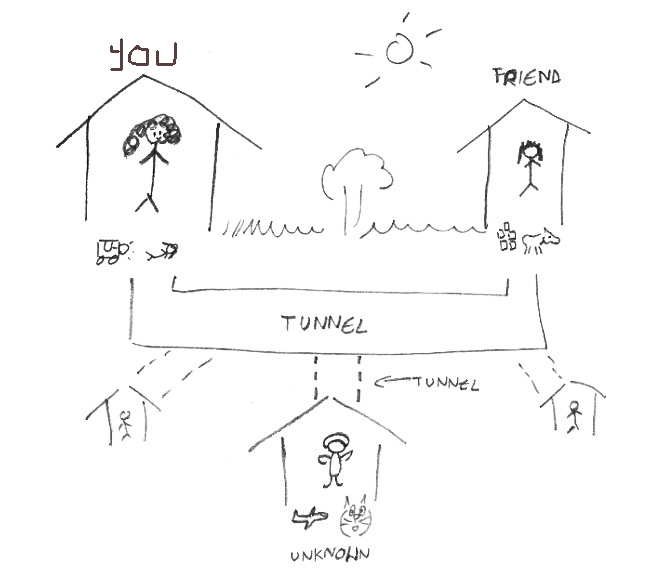 YOU
FRIEND
TUNNEL
TUNNEL
UNKNOWN